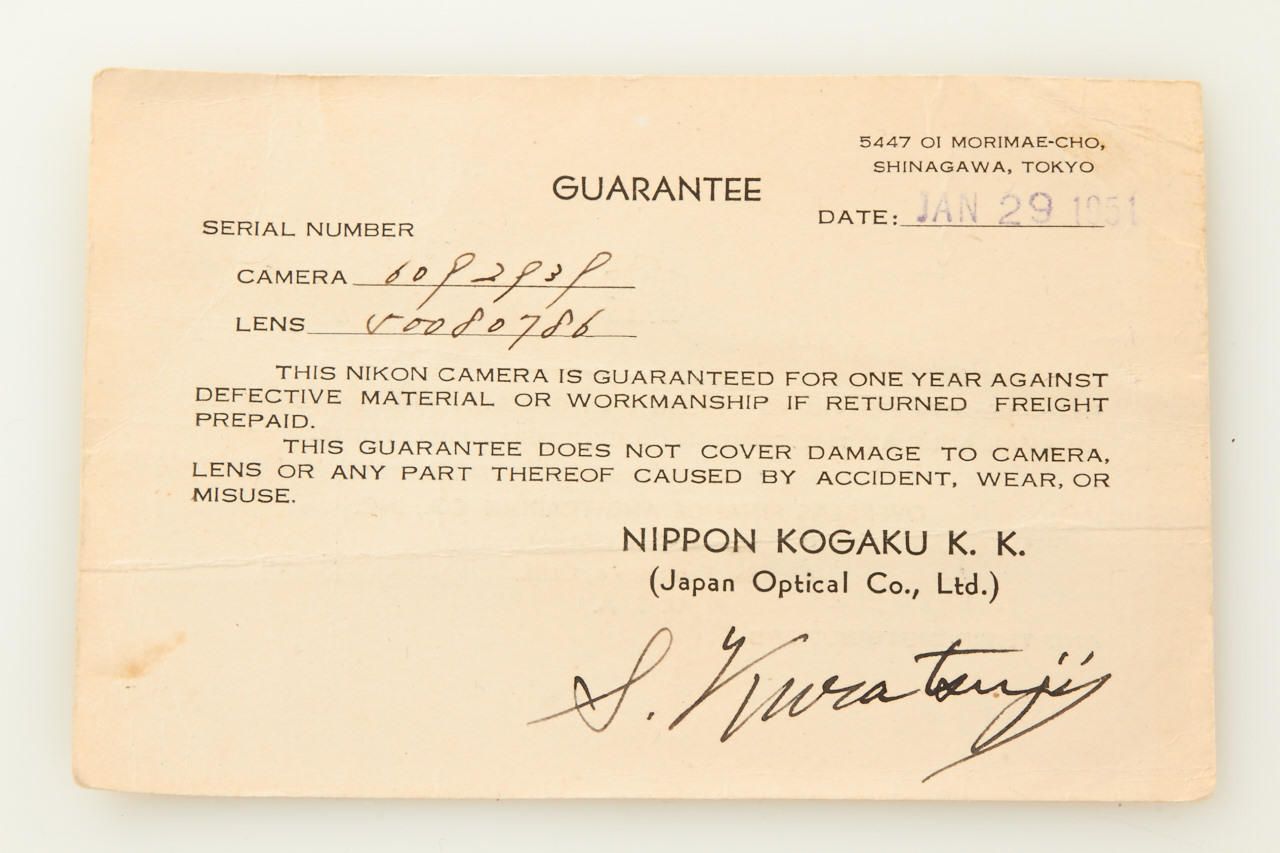 5447 OI MORIMAE-CHO,
SHINAGAWA, TOKYO
GUARANTEE
DATE: JAN 29 1951
SERIAL NUMBER
CAMERA 6092939
LENS 50080786
THIS NIKON CAMERA IS GUARANTEED FOR ONE YEAR AGAINST
DEFECTIVE MATERIAL OR WORKMANSHIP IF RETURNED FREIGHT
PREPAID.
THIS GUARANTEE DOES NOT COVER DAMAGE TO CAMERA,
LENS OR ANY PART THEREOF CAUSED BY ACCIDENT, WEAR, OR
MISUSE.
NIPPON KOGAKU K. K.
(Japan Optical Co., Ltd.)
S. Kuratsuji